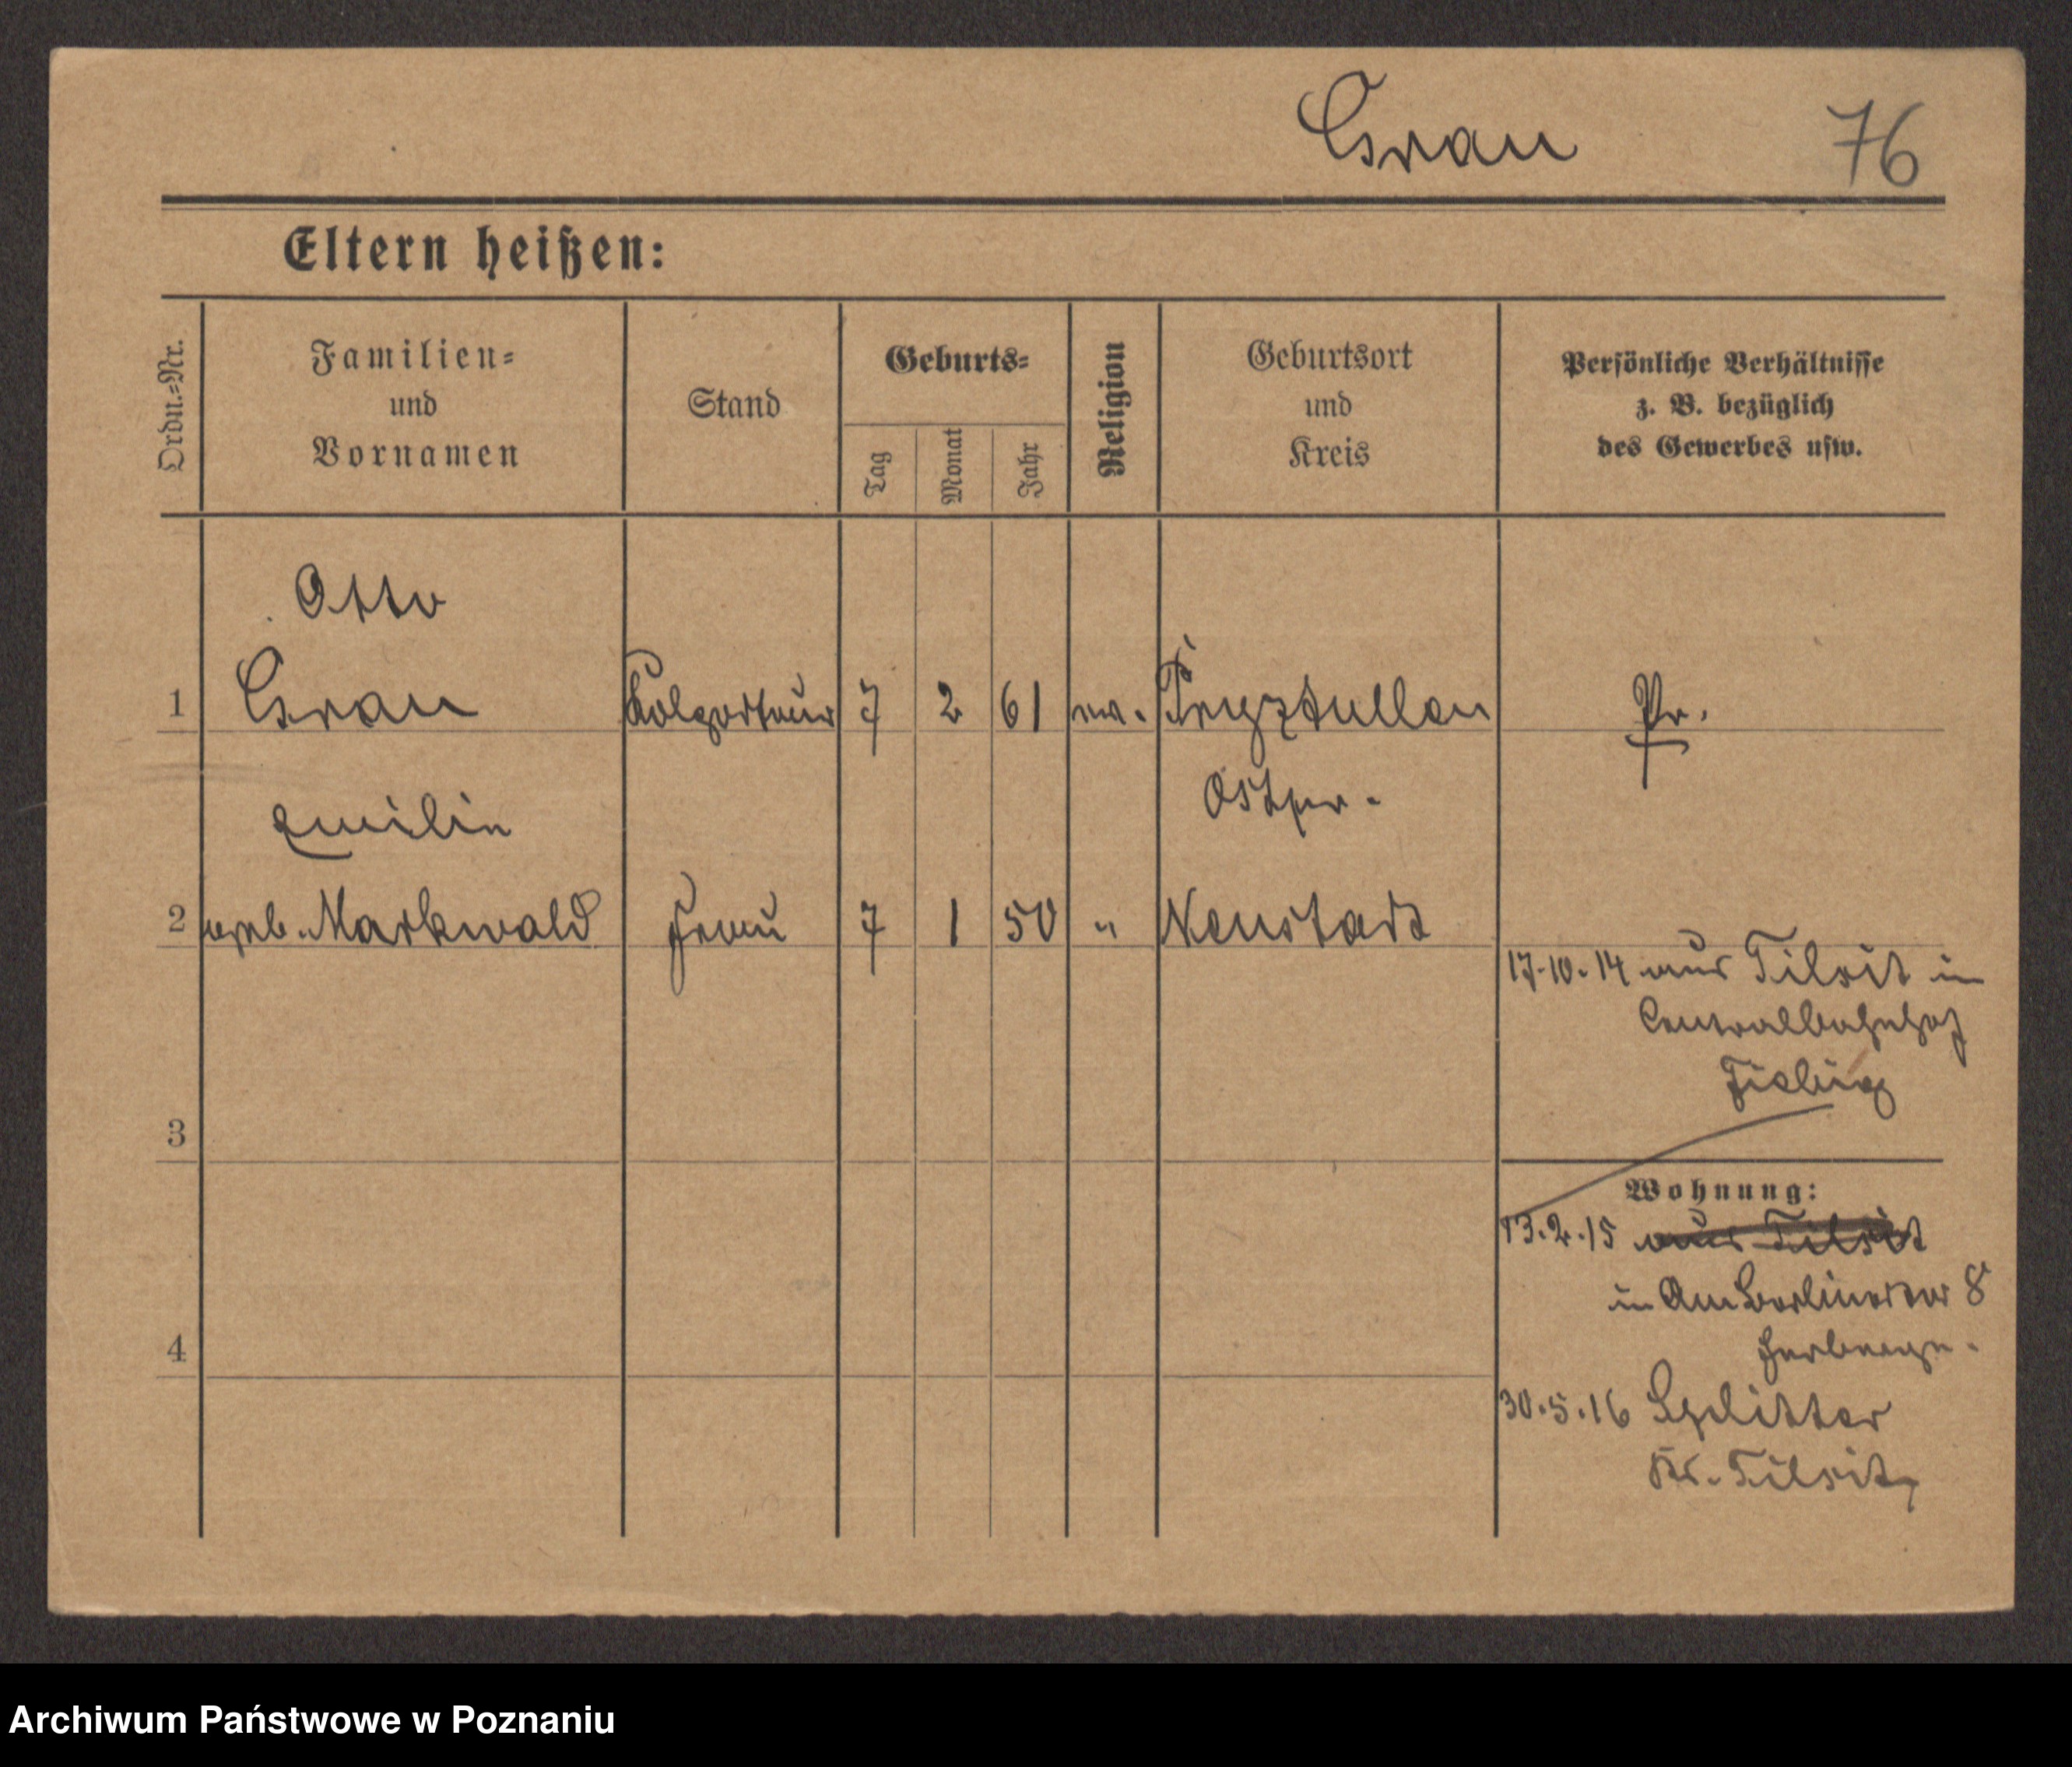 Gran 76
Eltern heißen:
Ordn.-Nr.
Familien-
und
Vornamen
Stand
Geburts-
Tag
Monat
Jahr
Religion
Geburtsort
und
Kreis
Persönliche Verhältnisse
z. B. bezüglich
des Gewerbes usw.
Otto
1 Gran Kolporteur 7 2 61 ev. Pr.
Emilie Ostpr.
2 geb. Markwald Frau 7 1 50 " Neustadt
17.10.14 aus Tilsit in
Centralbahnhof
3
Wohnung:
13.2.15 aus Tilsit
in Am Berlinertor 8
4 Herberge.
30.5.16 Splitter
Kr. Tilsit
Archiwum Państwowe w Poznaniu